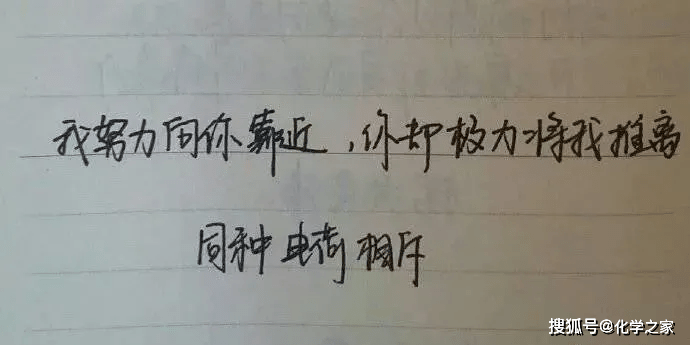 我努力向你靠近，你却极力将我推离
同种电荷相斥
搜狐号@化学之家